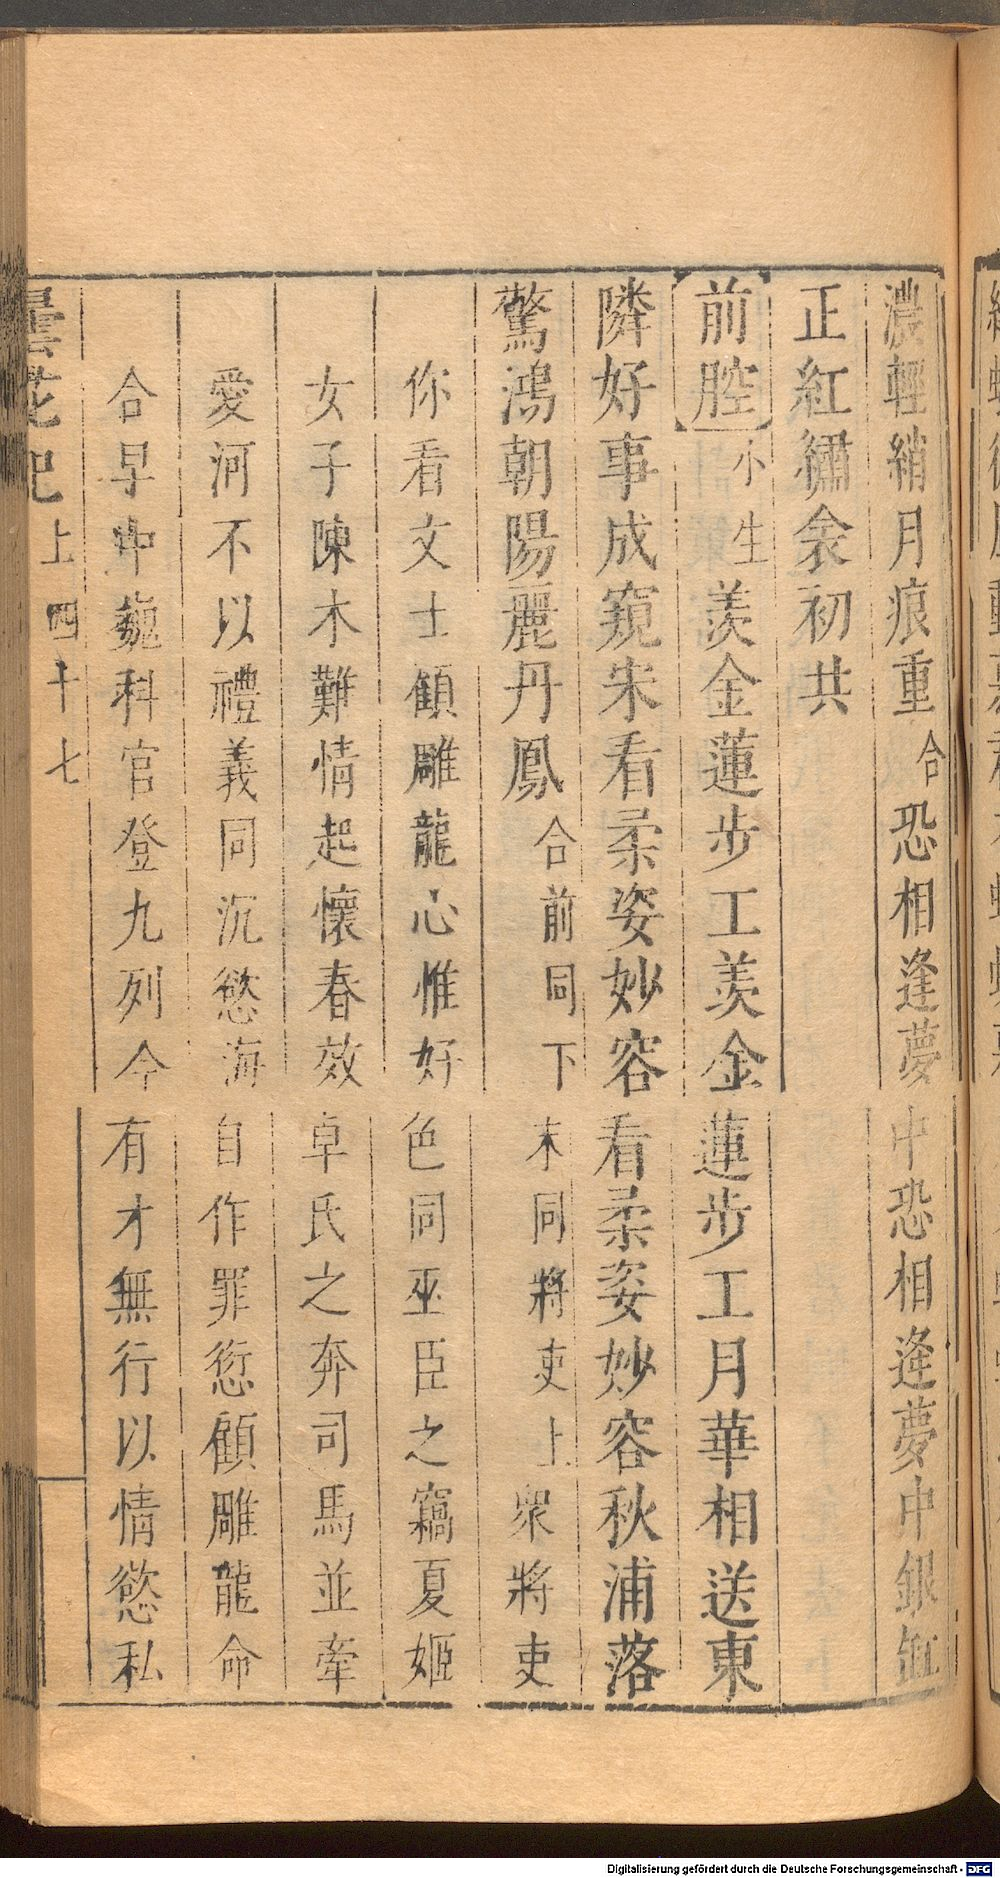 濃輕綃月痕重合恐相逢夢中恐相逢夢中銀缸
正紅繡衾初共
前腔小生羨金蓮步工羨金蓮步工月華相送東
隣好事成窺宋看柔姿妙容看柔姿妙容秋浦落
驚鴻朝陽麗丹鳳合前同下末同將吏上衆將吏
你看文士顧雕龍心惟好色同巫臣之竊夏姬
女子陳木難情起懷春效卓氏之奔司馬並牽
愛河不以禮義同沉慾海自作罪愆顧雕龍命
合早中巍科官登九列今有才無行以情慾私
曇花記 上 四十七
Digitalisierung gefördert durch die Deutsche Forschungsgemeinschaft - DFG